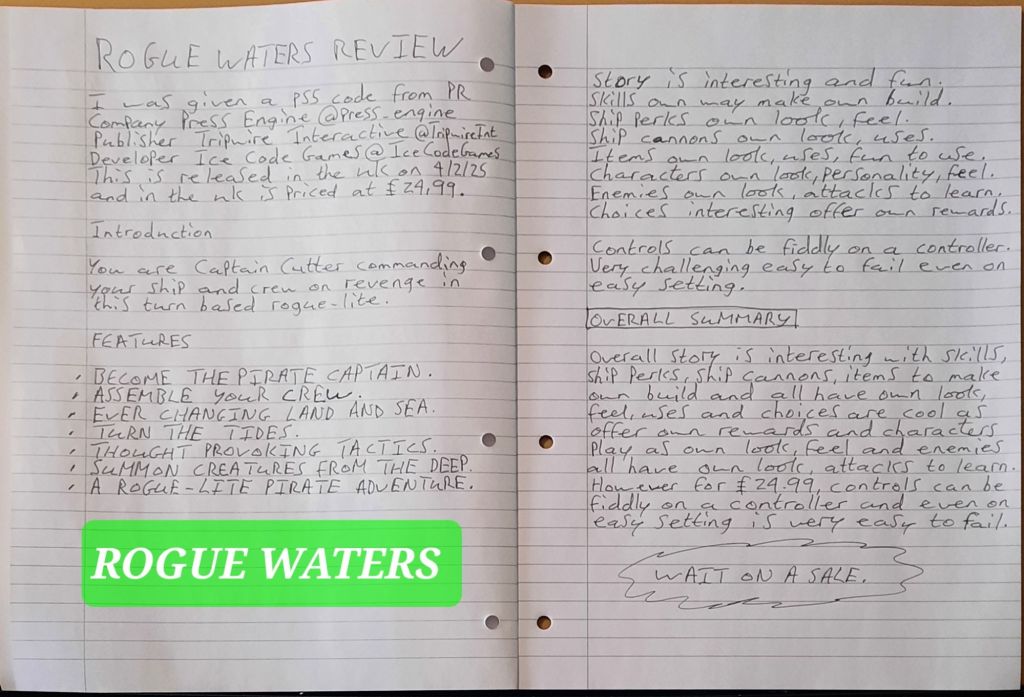 ROGUE WATERS REVIEW
I was given a PS5 code from PR
Company Press Engine @Press_engine
Publisher Tripwire Interactive @TripwireInt
Developer Ice Code Games @IceCodeGames
This is released in the uk on 4/2/25
and in the uk is priced at £24.99.
Introduction
You are Captain Cutter commanding
your ship and crew on revenge in
this turn based rogue-lite.
FEATURES
· BECOME THE PIRATE CAPTAIN.
· ASSEMBLE YOUR CREW.
· EVER CHANGING LAND AND SEA.
· TURN THE TIDES.
· THOUGHT PROVOKING TACTICS.
· SUMMON CREATURES FROM THE DEEP.
· A ROGUE-LITE PIRATE ADVENTURE.
ROGUE WATERS
Story is interesting and fun.
Skills own may make own build.
Ship perks own look, feel.
Ship cannons own look, uses.
Items own look, uses, fun to use.
Characters own look, personality, feel.
Enemies own look, attacks to learn.
Choices interesting offer own rewards.
Controls can be fiddly on a controller.
Very challenging easy to fail even on
easy setting.
OVERALL SUMMARY
Overall story is interesting with skills,
ship perks, ship cannons, items to make
own build and all have own look,
feel, uses and choices are cool as
offer own rewards and characters
Play as own look, feel and enemies
all have own look, attacks to learn.
However for £24.99, controls can be
fiddly on a controller and even on
easy setting is very easy to fail.
WAIT ON A SALE.